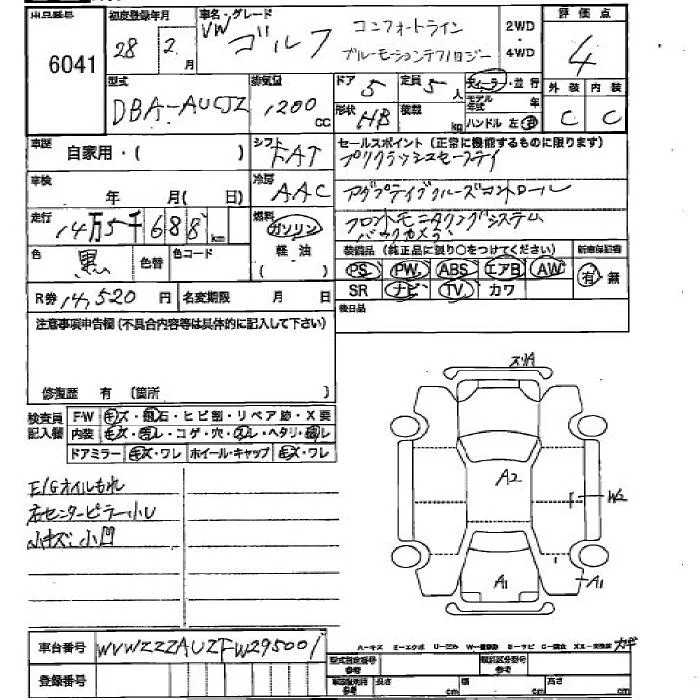 出品番号
6041
初度登録年月
28年2月
車名・グレード
VW ゴルフ
コンフォートライン
ブルーモーションテクノロジー
2WD
・
4WD
評価点
4
外装
内装
C
C
型式
DBA-AUCJZ
排気量
1200
CC
ドア
5
定員
5人
形状
HB
積載
kg
ディーラー・並行
モデル年式
年
ハンドル 左・右
車歴
自家用・( )
シフト
FAT
セールスポイント (正常に機能するものに限ります)
プリクラッシュセーフティ
アダプティブクルーズコントロール
フロントモニタリングシステム
バックカメラ
車検
年 月( 日)
冷房
AAC
走行
14万5千688km
燃料
ガソリン
軽油
( )
色
黒
色替
色コード
装備品 (純正品に限り○をつけてください)
新車保証書
PS PW ABS エアB AW
有・無
SR ナビ TV カワ
R券 14,520 円
名変期限 月 日
後日品
注意事項申告欄 (不具合内容等は具体的に記入して下さい)
修復歴 有 (箇所 )
検査員
記入欄
F・W キズ・飛石・ヒビ割・リペア跡・X要
内装 キズ・汚レ・コゲ・穴・スレ・ヘタリ・切レ
ドアミラー キズ・ワレ ホイール・キャップ キズ・ワレ
E/Gオイルもれ
右センターピラー小レ
小キズ、小凹
スリA
A2
W2
A1
A1
A-キズ E-エクボ
車台番号
WVWZZZAUZFW295001
登録番号
型式指定番号
参考
類別区分番号
参考
参考
長
cm
幅
cm
高さ
cm